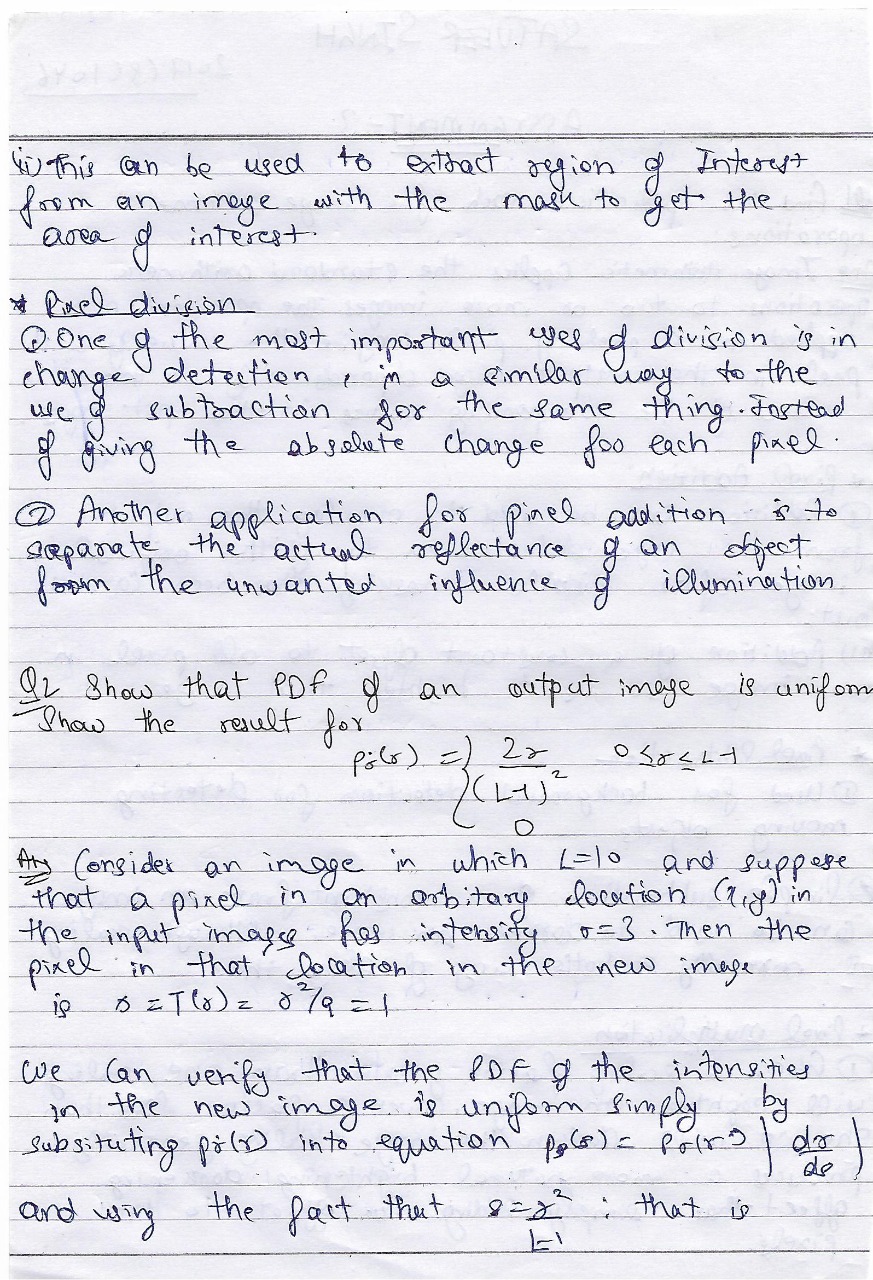 (ii) This can be used to extract region of Interest
from an image with the mask to get the
area of interest.
* Pixel division
① One of the most important uses of division is in
change detection, in a similar way to the
use of subtraction for the same thing. Instead
of giving the absolute change foo each pixel.
② Another application for pixel addition is to
separate the actual reflectance of an object
from the unwanted influence of illumination
Q2 Show that PDF of an output image is uniform
Show the result for
pr(r) = { 2r/(L-1)² 0≤r≤L-1
0
Ans Consider an image in which L=10 and suppose
that a pixel in an arbitary location (x,y) in
the input images has intensity r=3. Then the
pixel in that location in the new image
is s = T(r) = r²/9 = 1
We can verify that the PDF of the intensities
in the new image is uniform simply by
subsituting pr(r) into equation ps(s) = pr(r) | dr/ds |
and using the fact that s = r²/L-1 ; that is